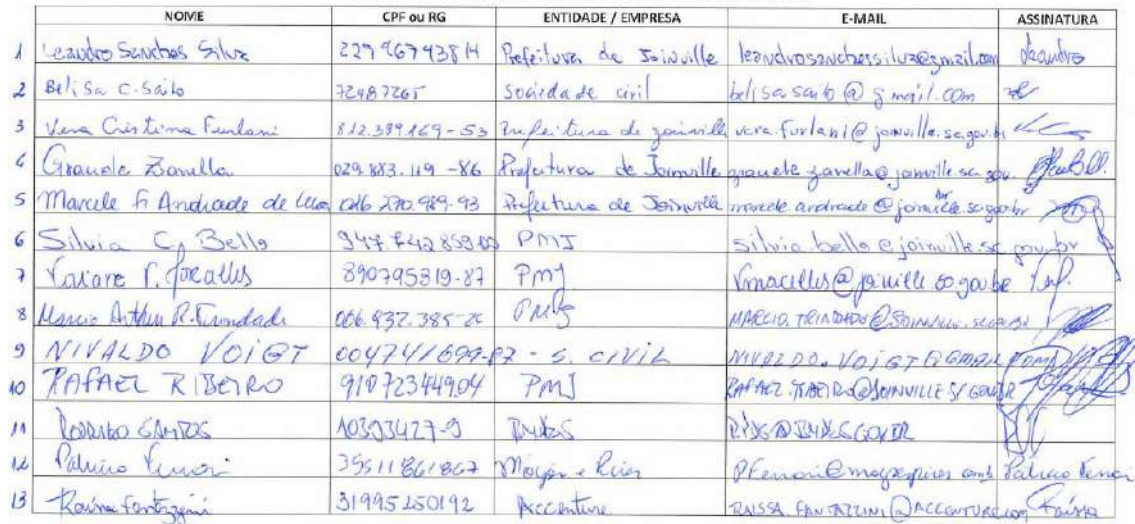 NOME CPF ou RG ENTIDADE / EMPRESA E-MAIL ASSINATURA
1 Leandro Sanches Silva 22996743814 Prefeitura de Joinville leandrosanchessilva@gmail.com Leandro
2 Belisa C. Saito 72987265 Sociedade civil belisa.saito@gmail.com
3 Vera Cristina Furlani 812.389.169-53 Prefeitura de Joinville vera.furlani@joinville.sc.gov.br
4 Zanella 029.883.119-86 Prefeitura de Joinville zanella@joinville.sc.gov.
5 Marcele Andrade de 026 270.989-93 Prefeitura de Joinville marcele.andrade@joinville.sc.gov.br
6 Silvia C. Bello PMJ silvia.bello@joinville.sc.gov.br
7 890795319-87 PMJ
8 Marcio Arthur R. Trindade PMJ MARCIO.TRINDADE@JOINVILLE.SC.GOV.BR
9 NIVALDO VOIGT S. CIVIL NIVALDO.VOIGT@GMAIL.COM
10 RAFAEL RIBEIRO 91072344904 PMJ RAFAEL.RIBEIRO@JOINVILLE.SC.GOV.BR
11 RODRIGO SANTOS BNDES
12 Patricio Ferrari 35511861867 Patricio Ferrari
13 Raissa Fantazzini 31995250192 Accenture RAISSA.FANTAZZINI@ACCENTURE.com Raissa